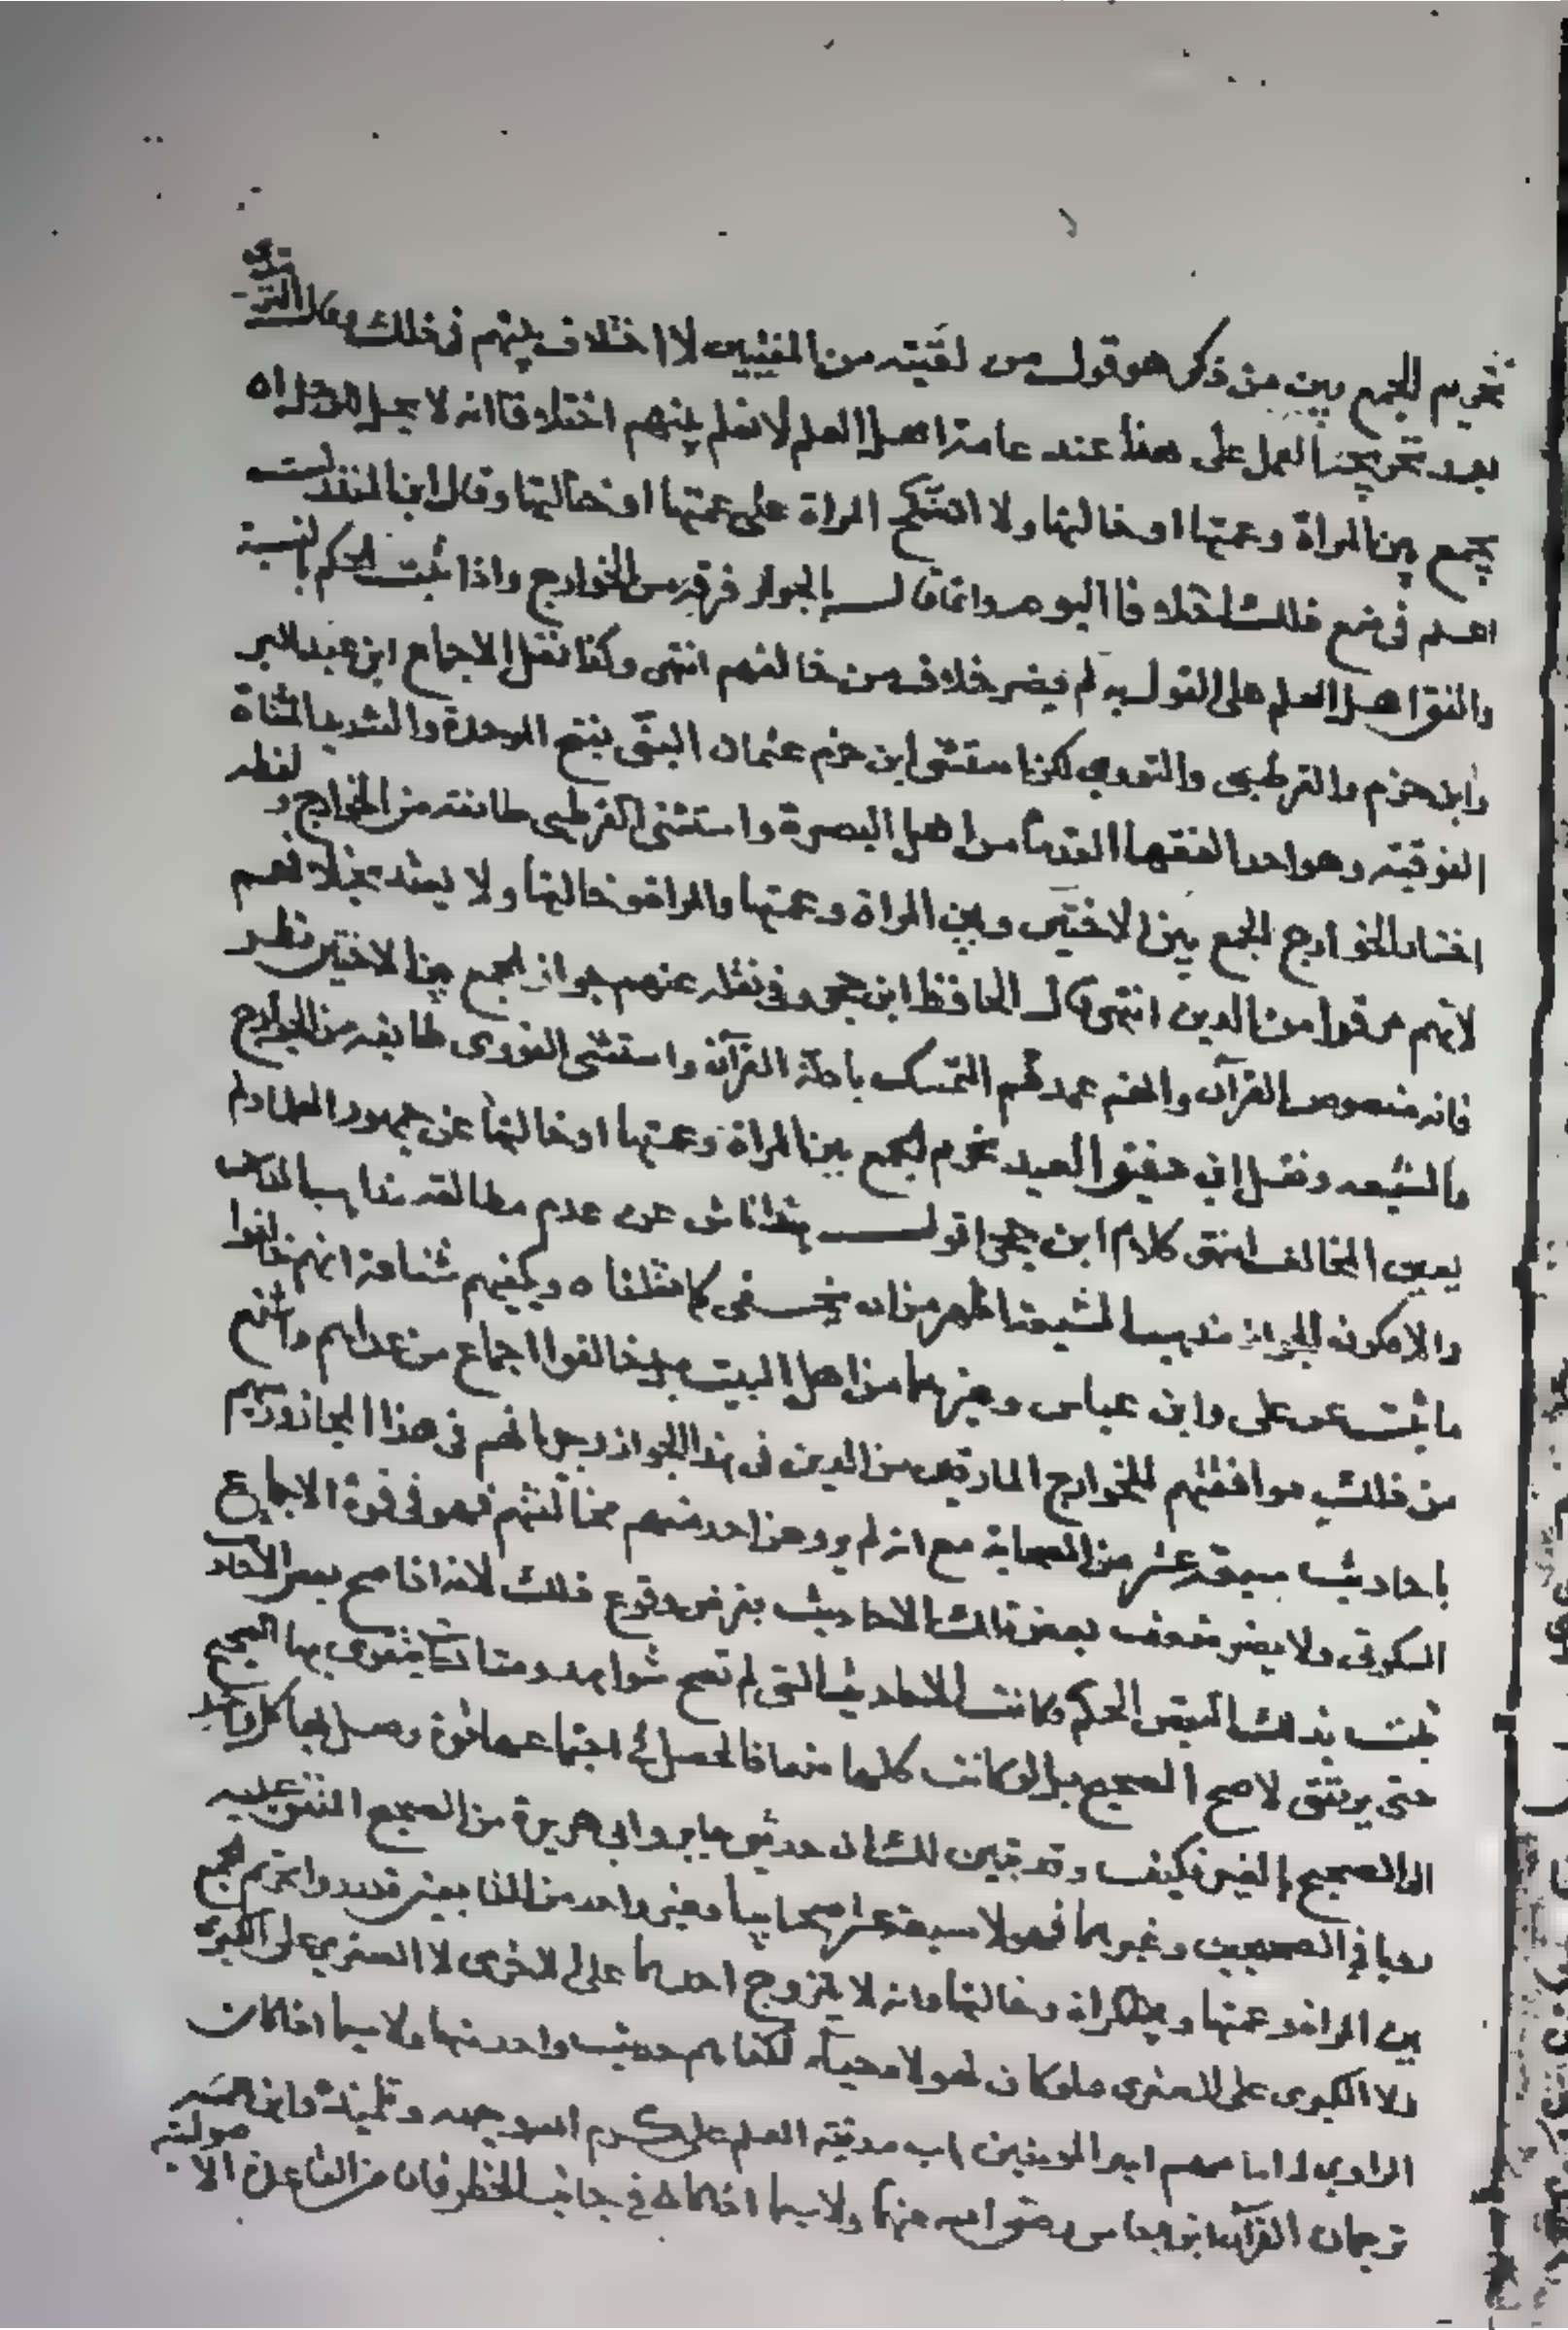 تحريم الجمع بين من ذكر هو قول من لقيته من المفتيين لا اختلاف بينهم في ذلك وقال الترمذي
بعد تخريجه العمل على هذا عند عامة اهل العلم لا نعلم بينهم اختلافا انه لا يحل للرجل ان
يجمع بين المراة وعمتها او خالتها ولا ان تنكح المراة على عمتها او خالتها وقال ابن المنذر لست
اعلم في منع ذلك اختلافا اليوم وانما قال بالجواز فرقة من الخوارج واذا ثبت الحكم بالسنة
واتفق اهل العلم على القول به لم يضر خلاف من خالفهم انتهى وكذا نقل الاجماع ابن عبد البر
وابن حزم والقرطبي والنووي لكن استثنى ابن حزم عثمان البتي بفتح الموحدة والتشديد المثناة
الفوقية وهو احد الفقها القدما من اهل البصرة واستثنى القرطبي طائفة من الخوارج ولفظه
اختار الخوارج الجمع بين الاختين وبين المراة وعمتها والمراة وخالتها ولا يعتد بخلافهم
لانهم مرقوا من الدين انتهى قال الحافظ ابن حجر وفي نقله عنهم جواز الجمع بين الاختين نظر
فانه منصوص القرآن والقوم عمدتهم التمسك بادلة القرآن واستثنى النووي طايفة من الخوارج
والشيعه ونقل ابن دقيق العيد تحريم الجمع بين المراة وعمتها او خالتها عن جمهور العلما ولم
يعين المخالف انتهى كلام ابن حجر اقول هذا ناش عن عدم مطالعة مذاهب الناس
والا فكون الجواز مذهب الشيعة اظهر من ان يخفى كما نقلناه ويكفيهم شناعة انهم خالفوا
ما ثبت عن علي وابن عباس وغيرهما من اهل البيت بل خالفوا اجماع من عداهم واشنع
من ذلك موافقتهم للخوارج المارقين من الدين في هذا الجواز وحرمانهم في هذا المجاز وردهم
باحاديث سبعة عشر من الصحابة مع انه لم يرد عن احد منهم مخالفتهم فهو في قوة الاجماع
السكوتي ولا يضر ضعف بعض تلك الاحاديث بفرض وقوع ذلك لانه اذا صح بعض الاحاد
ثبت بذلك البعض الحكم وكانت الاحاديث التي لم تصح شواهد ومتابعات يتقوى بها الصحيح
حتى يرتقي لاصح الصحيح بل لو كانت كلها ضعافا لحصل في اجتماعها قوة وصل بها كل واحد
الى الصحيح بالغير فكيف وقد تبين لك ان حديثي جابر وابي هريرة من الصحيح المتفق عليه
رويا في الصحيحين وغيرهما فهولا سبعة عشر صحابيا وغير واحد من التابعين قد رووا تحريم الجمع
بين المراة وعمتها وبين المراة وخالتها وانه لا يتزوج احدهما على الاخرى لا الصغرى على الكبرى
ولا الكبرى على الصغرى فلو كان لهولا محيا لكفاهم حديث واحد منها ولا سيما اذا كان
الراوي له امامهم امير المومنين باب مدينة العلم علي كرم الله وجهه وتلميذه وابن عمه
ترجمان القرآن ابن عباس رضي الله عنهما ولا سيما اذا كان في جانب الحظر فان من القاعدة الاصولية